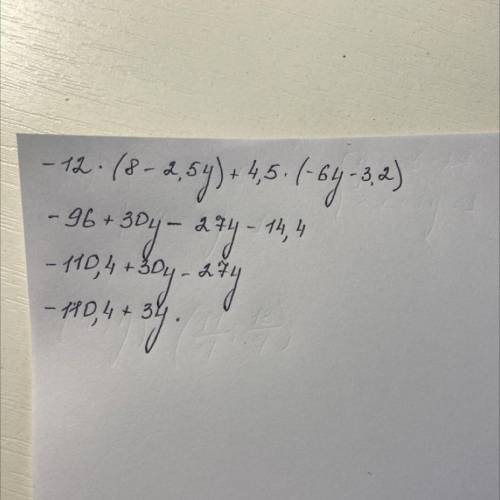 -12 · (8 - 2,5y) + 4,5 · (-6y - 3,2)
-96 + 30y - 27y - 14,4
-110,4 + 30y - 27y
-110,4 + 3y.